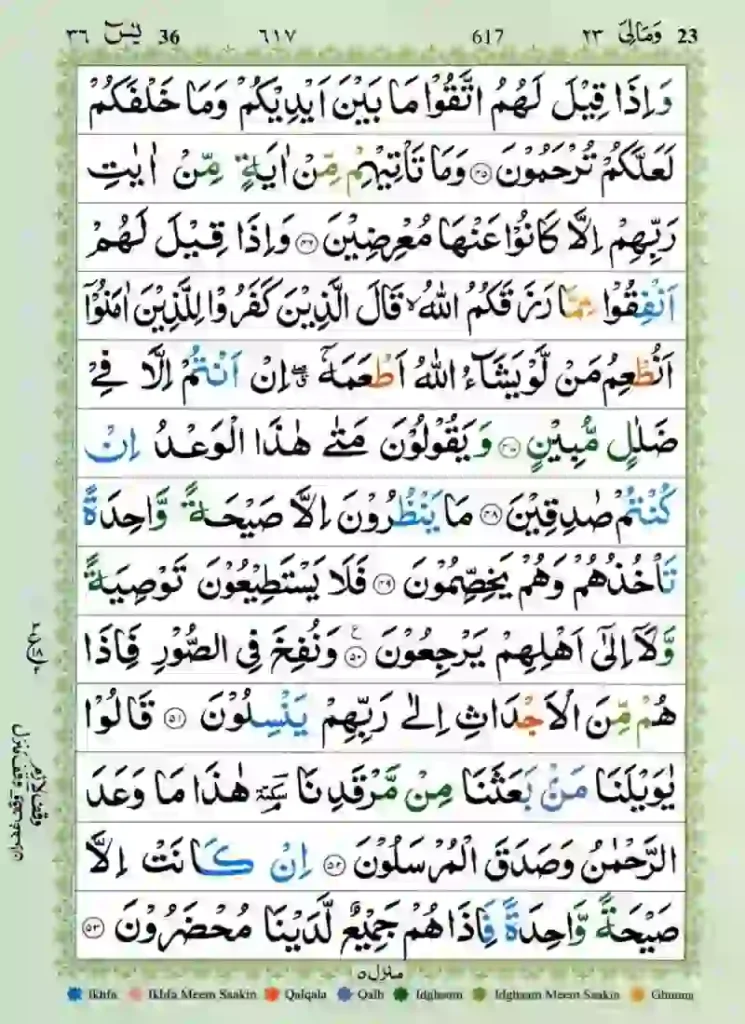 یٰسٓ ٣٦ 36 ٦١٧ 617 وَمَالِیَ ٢٣ 23
وَاِذَا قِيْلَ لَهُمُ اتَّقُوْا مَا بَيْنَ اَيْدِيْكُمْ وَمَا خَلْفَكُمْ
لَعَلَّكُمْ تُرْحَمُوْنَ ۝۴۵ وَمَا تَاْتِيْهِمْ مِّنْ اٰيَةٍ مِّنْ اٰيٰتِ
رَبِّهِمْ اِلَّا كَانُوْا عَنْهَا مُعْرِضِيْنَ ۝۴۶ وَاِذَا قِيْلَ لَهُمْ
اَنْفِقُوْا مِمَّا رَزَقَكُمُ اللّٰهُ ۙ قَالَ الَّذِيْنَ كَفَرُوْا لِلَّذِيْنَ اٰمَنُوْٓا
اَنُطْعِمُ مَنْ لَّوْ يَشَآءُ اللّٰهُ اَطْعَمَهٗٓ ۖ اِنْ اَنْتُمْ اِلَّا فِيْ
ضَلٰلٍ مُّبِيْنٍ ۝۴۷ وَيَقُوْلُوْنَ مَتٰى هٰذَا الْوَعْدُ اِنْ
كُنْتُمْ صٰدِقِيْنَ ۝۴۸ مَا يَنْظُرُوْنَ اِلَّا صَيْحَةً وَّاحِدَةً
تَاْخُذُهُمْ وَهُمْ يَخِصِّمُوْنَ ۝۴۹ فَلَا يَسْتَطِيْعُوْنَ تَوْصِيَةً
وَّلَآ اِلٰٓى اَهْلِهِمْ يَرْجِعُوْنَ ۝۵۰ ع وَنُفِخَ فِي الصُّوْرِ فَاِذَا
هُمْ مِّنَ الْاَجْدَاثِ اِلٰى رَبِّهِمْ يَنْسِلُوْنَ ۝۵۱ قَالُوْا
يٰوَيْلَنَا مَنْۢ بَعَثَنَا مِنْ مَّرْقَدِنَا ۘ هٰذَا مَا وَعَدَ
الرَّحْمٰنُ وَصَدَقَ الْمُرْسَلُوْنَ ۝۵۲ اِنْ كَانَتْ اِلَّا
صَيْحَةً وَّاحِدَةً فَاِذَا هُمْ جَمِيْعٌ لَّدَيْنَا مُحْضَرُوْنَ ۝۵۳
منزل ۵
Ikhfa Ikhfa Meem Saakin Qalqala Qalb Idghaam Idghaam Meem Saakin Ghunna